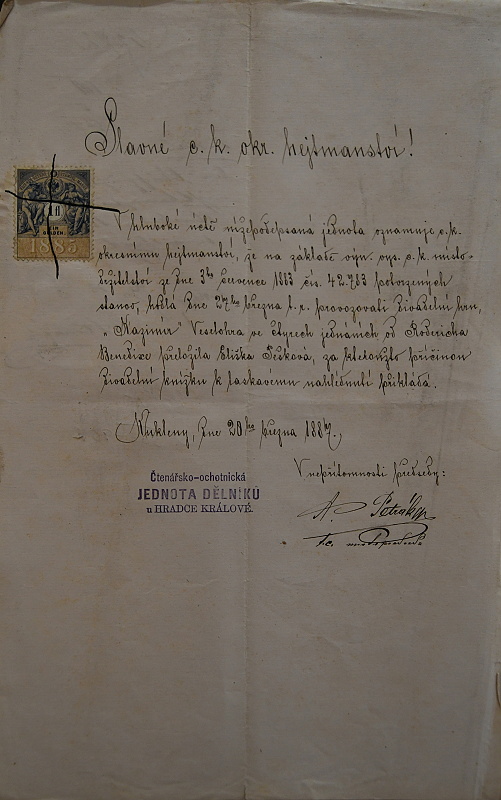 Slavné c. k. okr. hejtmanství!
1
EIN
GULDEN
1885
V hluboké úctě nížepodepsaná jednota oznamuje c. k.
okresnímu hejtmanství, že na základě výn. vys. c. k. místo-
držitelství ze dne 3ho července 1883 čís. 42.783 potvrzených
stanov, hodlá dne 27ho března t. r. provozovati divadelní hru,
„Kazimír“ Veselohra ve čtyrech jednáních od Rodericha
Benedixe přeložila Eliška Pešková, za kteroužto příčinou
divadelní knížku k laskavému nahlédnutí přikládá.
Kukleny, dne 20ho března 1887.
V nepřítomnosti předsedy:
Čtenářsko-ochotnická
JEDNOTA DĚLNÍKŮ
u HRADCE KRÁLOVÉ.
A. Petrák
místopředseda